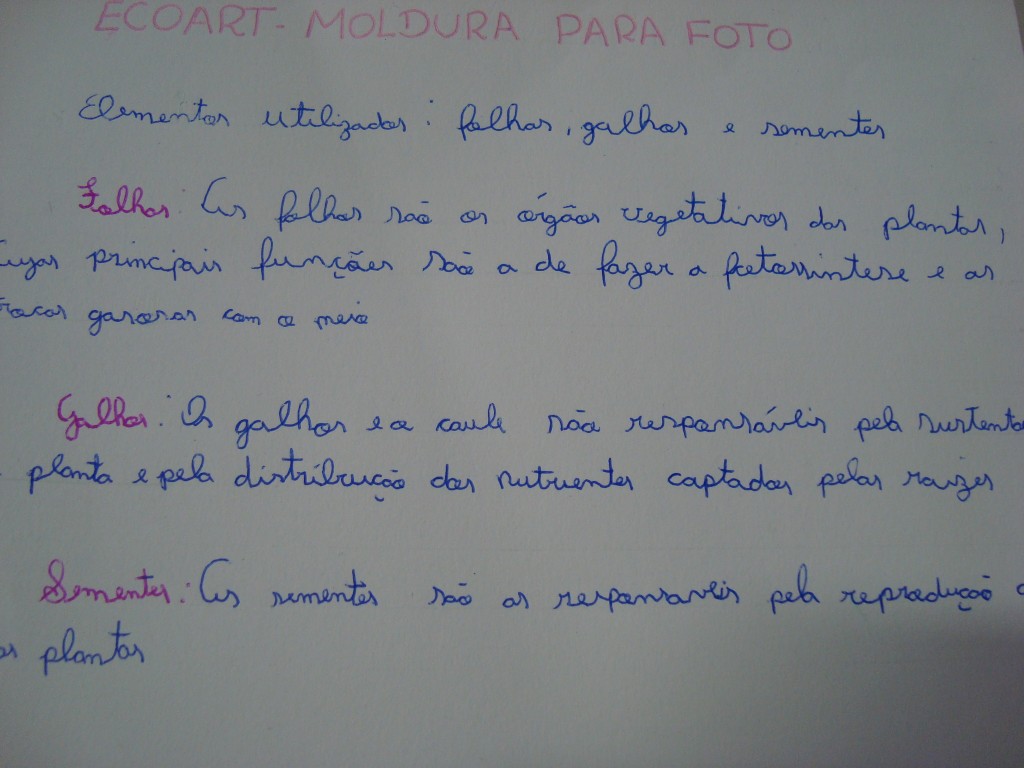 ECOART - MOLDURA PARA FOTO
Elementos utilizados: folhas, galhos e sementes
Folhas: As folhas são os órgãos vegetativos das plantas,
cujas principais funções são a de fazer a fotossintese e as
trocas gasosas com o meio
Galhos: Os galhos e o caule são responsáveis pela sustenta
planta e pela distribuição dos nutrientes captados pelas raizes
Sementes: As sementes são as responsaveis pela reprodução d
as plantas